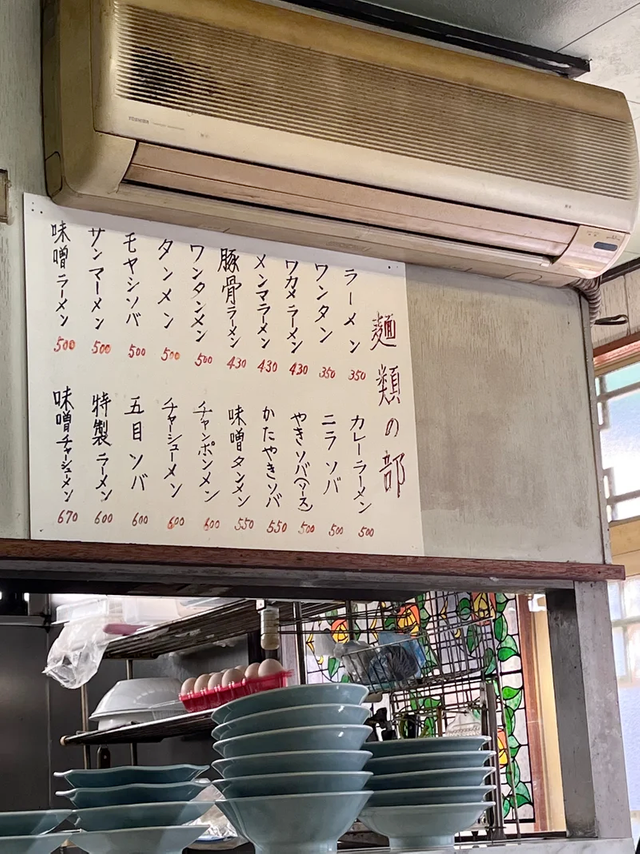 麺類の部
ラーメン 350
ワンタン 350
ワカメラーメン 430
メンマラーメン 430
豚骨ラーメン 430
ワンタンメン 500
タンメン 500
モヤシソバ 500
サンマーメン 500
味噌ラーメン 500
カレーラーメン 500
ニラソバ 500
やきソバ(ソース) 500
かたやきソバ 550
味噌タンメン 550
チャンポンメン 600
チャーシューメン 600
五目ソバ 600
特製ラーメン 600
味噌チャーシューメン 670